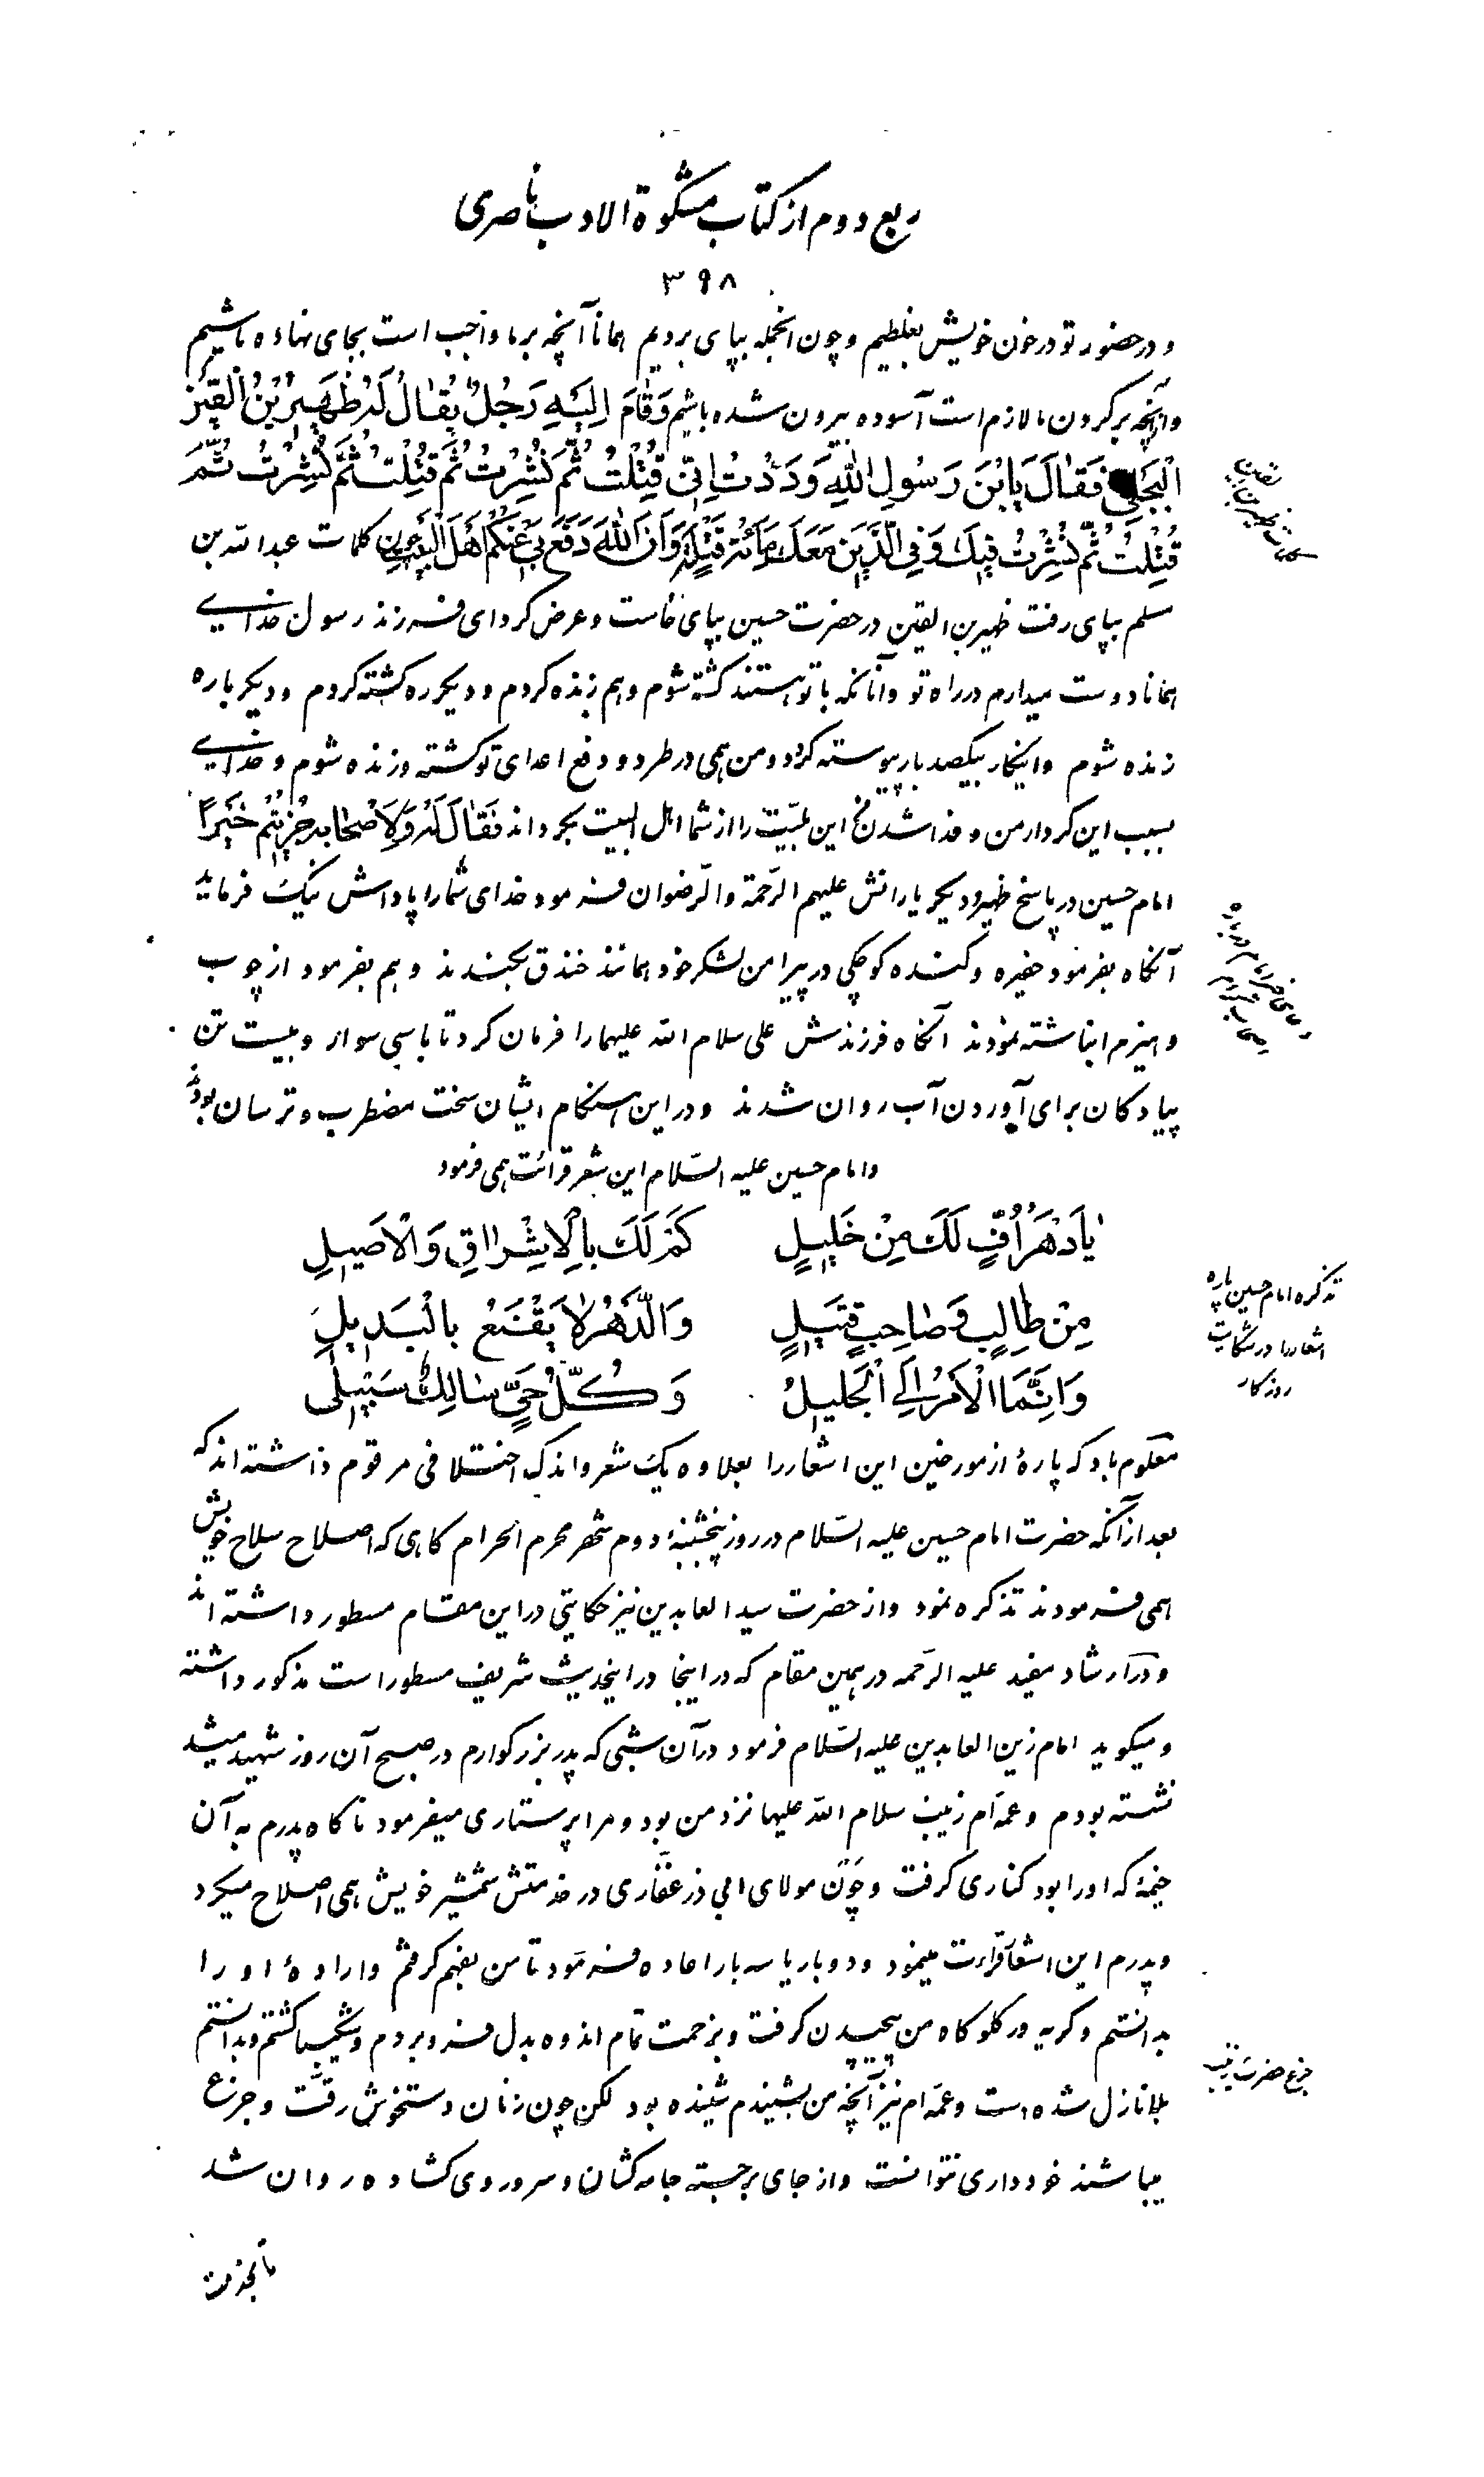 ربع دوم از کتاب مشکوة الادب ناصری
۳۹۸
و در حضور تو در خون خویش بغلطیم و چون اینجمله بپای بردیم همانا آنچه بر ما واجب است بجای نهاده باشیم
و آنچه بر گردن ما لازم است آسوده بیرون شده باشیم وَقٰامَ اِلَیْهِ رَجُلٌ یُقٰالُ لَهُ ظُهَیْرُ بْنُ الْقَیْنِ
الْبَجَلِی فَقٰالَ یَا بْنَ رَسُولِ اللّٰهِ وَدَدْتُ اِنّی قُتِلْتُ ثُمَّ نُشِرْتُ ثُمَّ قُتِلْتُ ثُمَّ نُشِرْتُ ثُمَّ
قُتِلْتُ ثُمَّ نُشِرْتُ فیكَ وَفِی الَّذینَ مَعَكَ مِائَةَ قَتْلَةٍ وَاَنَّ اللّٰهَ دَفَعَ بی عَنْكُمْ اَهْلَ الْبَیْتِ چون کلمات عبدالله بن
مسلم بپای رفت ظهیر بن القین در حضرت حسین بپای خاست و عرض کرد ای فرزند رسول خدای
همانا دوست میدارم در راه تو و آنانکه با تو هستند کشته شوم و هم زنده کردم و دیکر ره کشته کردم و دیکر باره
زنده شوم و اینکار بیکصد بار پیوسته کردد و من همی در طرد و دفع اعدای تو کشته و زنده شوم و خدای
بسبب این کردار من و فدا شدن من این بلیّت را از شما اهل البیت بکرداند فَقٰالَ لَهُ وَلِاَصْحٰابِهِ جُزیتُمْ خَیْراً
امام حسین در پاسخ ظهیر و دیکر یارانش علیهم الرّحمة و الرّضوان فرمود خدای شما را پاداش نیک فرماید
آنکاه بفرمود حفیره و کنده کوچکی در پیرامن لشکر خود همانند خندق بکندند و هم بفرمود از چوب
و هیزم انباشته نمودند آنکاه فرزندش علی سلام الله علیهما را فرمان کرد تا با سی سوار و بیست تن
پیادکان برای آوردن آب روان شدند و در این هنکام ایشان سخت مضطرب و ترسان بودند
و امام حسین علیه السّلام این شعر قرائت همی فرمود
یٰا دَهْرُ اُفٍّ لَكَ مِنْ خَلیلٍ      كَمْ لَكَ بِالْاِشْرٰاقِ وَالْاَصیلِ
مِنْ طٰالِبٍ وَ صٰاحِبٍ قَتیلٍ      وَالدَّهْرُ لٰا یَقْنَعُ بِالْبَدیلِ
وَ اِنَّمَا الْاَمْرُ اِلَی الْجَلیلُ      وَ كُلُّ حَیٍّ سٰالِكٌ سَبیلی
معلوم باد که پارهٔ از مورخین این اشعار را بعلاوه یک شعر و اندک اختلافی مرقوم داشته اند که
بعد از آنکه حضرت امام حسین علیه السّلام در روز پنجشنبهٔ دوم شهر محرم الحرام کاهی که اصلاح سلاح خویش
همی فرمودند تذکره نمود و از حضرت سید العابدین نیز حکایتی در این مقام مسطور داشته اند
و در ارشاد مفید علیه الرّحمه در همین مقام که در اینجا در اینحدیث شریف مسطور است مذکور داشته
و میکوید امام زین العابدین علیه السّلام فرمود در آن شبی که پدر بزرکوارم در صبح آن روز شهید میشد
نشسته بودم و عمّه ام زینب سلام الله علیها نزد من بود و مرا پرستاری میفرمود ناکاه پدرم به آن
خیمهٔ که او را بود کناری کرفت و جَوْن مولای ابی ذر غفّاری در خدمتش شمشیر خویش همی اصلاح میکرد
و پدرم این اشعار قراءت مینمود و دو بار یا سه بار اعاده فرمود تا من بفهم کرفتم و ارادهٔ او را
بدانستم و کریه در کلوکاه من پیچیدن کرفت و بزحمت تمام اندوه بدل فرو بردم و شکیبا کشتم و بدانستم
بلا نازل شده است و عمّه ام نیز آنچه من بشنیدم شنیده بود لکن چون زنان دستخوش رقّت و جزع
میباشند خودداری نتوانست و از جای برجسته جامه کشان و سر و روی کشاده روان شد
تا بخدمت
دعای حضرت امام حسین درباره
اصحاب
تذکره امام حسین پاره
اشعار را در شکایت
روزکار
جزع حضرت زینب